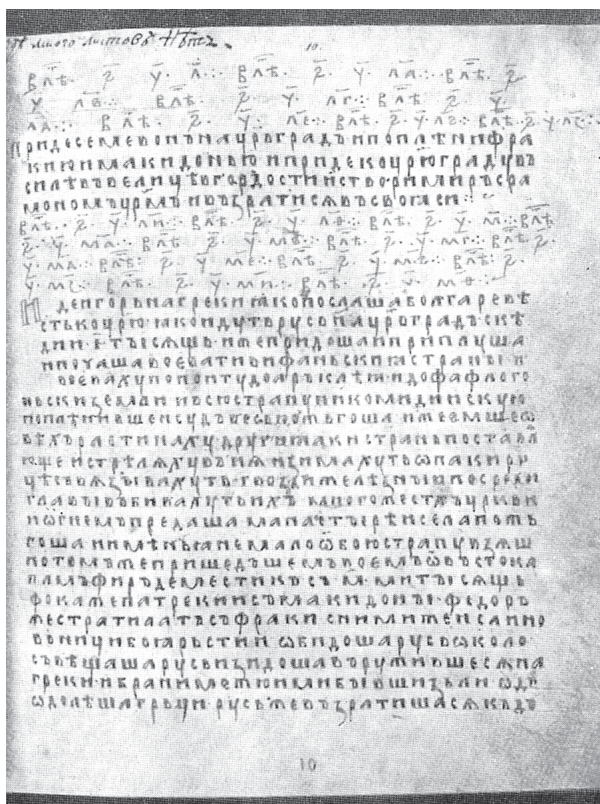 много листовъ нѣтъ. 10.
в лѣ҃. ҂ѕ҃. у҃. л҃. в лѣ҃. ҂ѕ҃. у҃. л҃а. в лѣ҃. ҂ѕ҃.
у҃. л҃в. в лѣ҃. ҂ѕ҃. у҃. л҃г. в лѣ҃. ҂ѕ҃. у҃.
л҃д. в лѣ҃. ҂ѕ҃. у҃. л҃е. в лѣ҃. ҂ѕ҃. у҃. л҃ѕ. в лѣ҃. ҂ѕ҃. у҃. л҃з.
Приде семевонъ на цр҃ьградъ и поплѣни фра
кию и макидонью и приде ко цр҃юграду въ
силѣ въ велицѣ в гордости и створи миръ с ра
моном цр҃мъ и възъратисѧ въ своꙗси.
в лѣ҃. ҂ѕ҃. у҃. л҃и. в лѣ҃. ҂ѕ҃. у҃. л҃ѳ. в лѣ҃. ҂ѕ҃. у҃. м҃. в лѣ҃.
҂ѕ҃. у҃. м҃а. в лѣ҃. ҂ѕ҃. у҃. м҃в. в лѣ҃. ҂ѕ҃. у҃. м҃г. в лѣ҃. ҂ѕ҃.
у҃. м҃д. в лѣ҃. ҂ѕ҃. у҃. м҃е. в лѣ҃. ҂ѕ҃.
у҃. м҃ѕ. в лѣ҃. ҂ѕ҃. у҃. м҃и. в лѣ҃. ҂ѕ҃. у҃. м҃ѳ.
Иде игорь на греки ꙗко послаша болгаре вѣ
сть ко цр҃ю ꙗко идуть русь на цр҃ьградъ скѣ
дии. ҃і. тысѧщь иже придоша и приплуша
и почаша воевати вифаньскиꙗ страны и
воеваху по понту до аръклѣꙗ и до фафлого
ньски земли и всю страну никомидийскую
поплѣнивше и судъ весь пожьгоша ихже емше ѡ
вѣхъ растинаху другиꙗ аки странь поставлѧ
юще и стрѣлѧху въ нѧ изимахуть ѡпаки ру
цѣ съвѧзывахуть гвозди желѣзныи посреди
главы въбивахуть имъ много же ст҃хъ цр҃кви
и ѡгнемъ предаша манастырѣ и села пожь
гоша и имѣньꙗ немало ѿ обою страну взѧша
потомъ же пришедъшемъ воемъ ѿ въстока
панъфиръ деместикъ съ м҃. ми тысѧщь
фока же патрекии съ макидоны федоръ
же стратилатъ съ фраки с ними же и сановни
ци боꙗрьстии ѡбидоша русь ѡколо
съвѣщаша русь изидоша въружившесѧ на
греки и брани межю ими бывши зьли ѡдва
ѡдолѣша грьци русь же възратишасѧ къ дъ
10